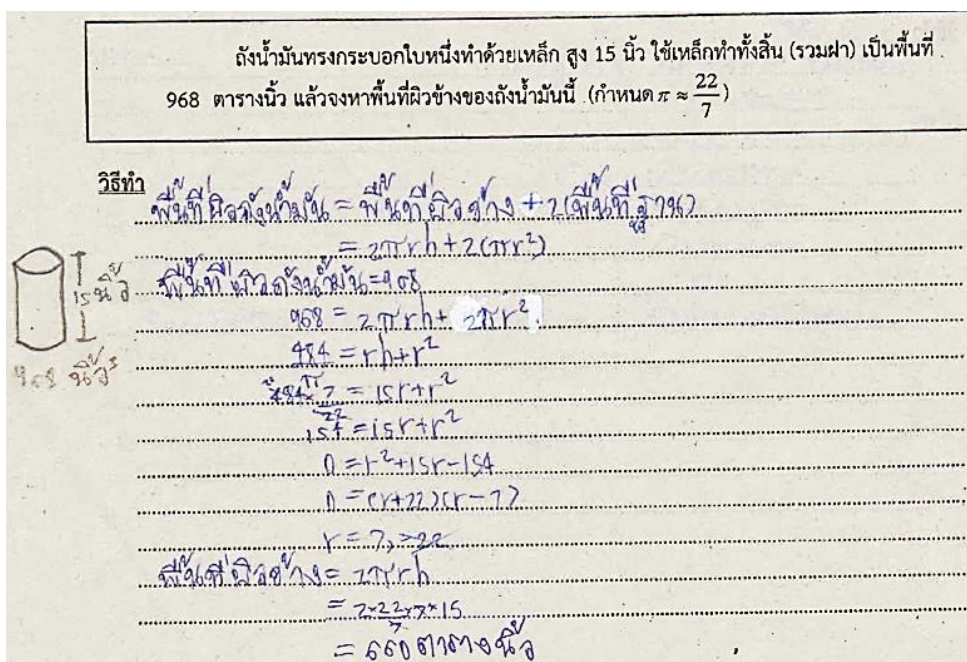 ถังน้ำมันทรงกระบอกใบหนึ่งทำด้วยเหล็ก สูง 15 นิ้ว ใช้เหล็กทำทั้งสิ้น (รวมฝา) เป็นพื้นที่
968 ตารางนิ้ว แล้วจงหาพื้นที่ผิวข้างของถังน้ำมันนี้ (กำหนด π ≈ 22/7)
วิธีทำ
พื้นที่ผิวถังน้ำมัน = พื้นที่ผิวข้าง + 2(พื้นที่ฐาน)
= 2πrh + 2(πr²)
15 นิ้ว
พื้นที่ผิวถังน้ำมัน = 968
968 = 2πrh + 2πr²
968 นิ้ว²
484/π = rh + r²
484 × 7/22 = 15r + r²
154 = 15r + r²
0 = r² + 15r - 154
0 = (r + 22)(r - 7)
r = 7, -22
พื้นที่ผิวข้าง = 2πrh
= 2 × 22/7 × 7 × 15
= 660 ตารางนิ้ว